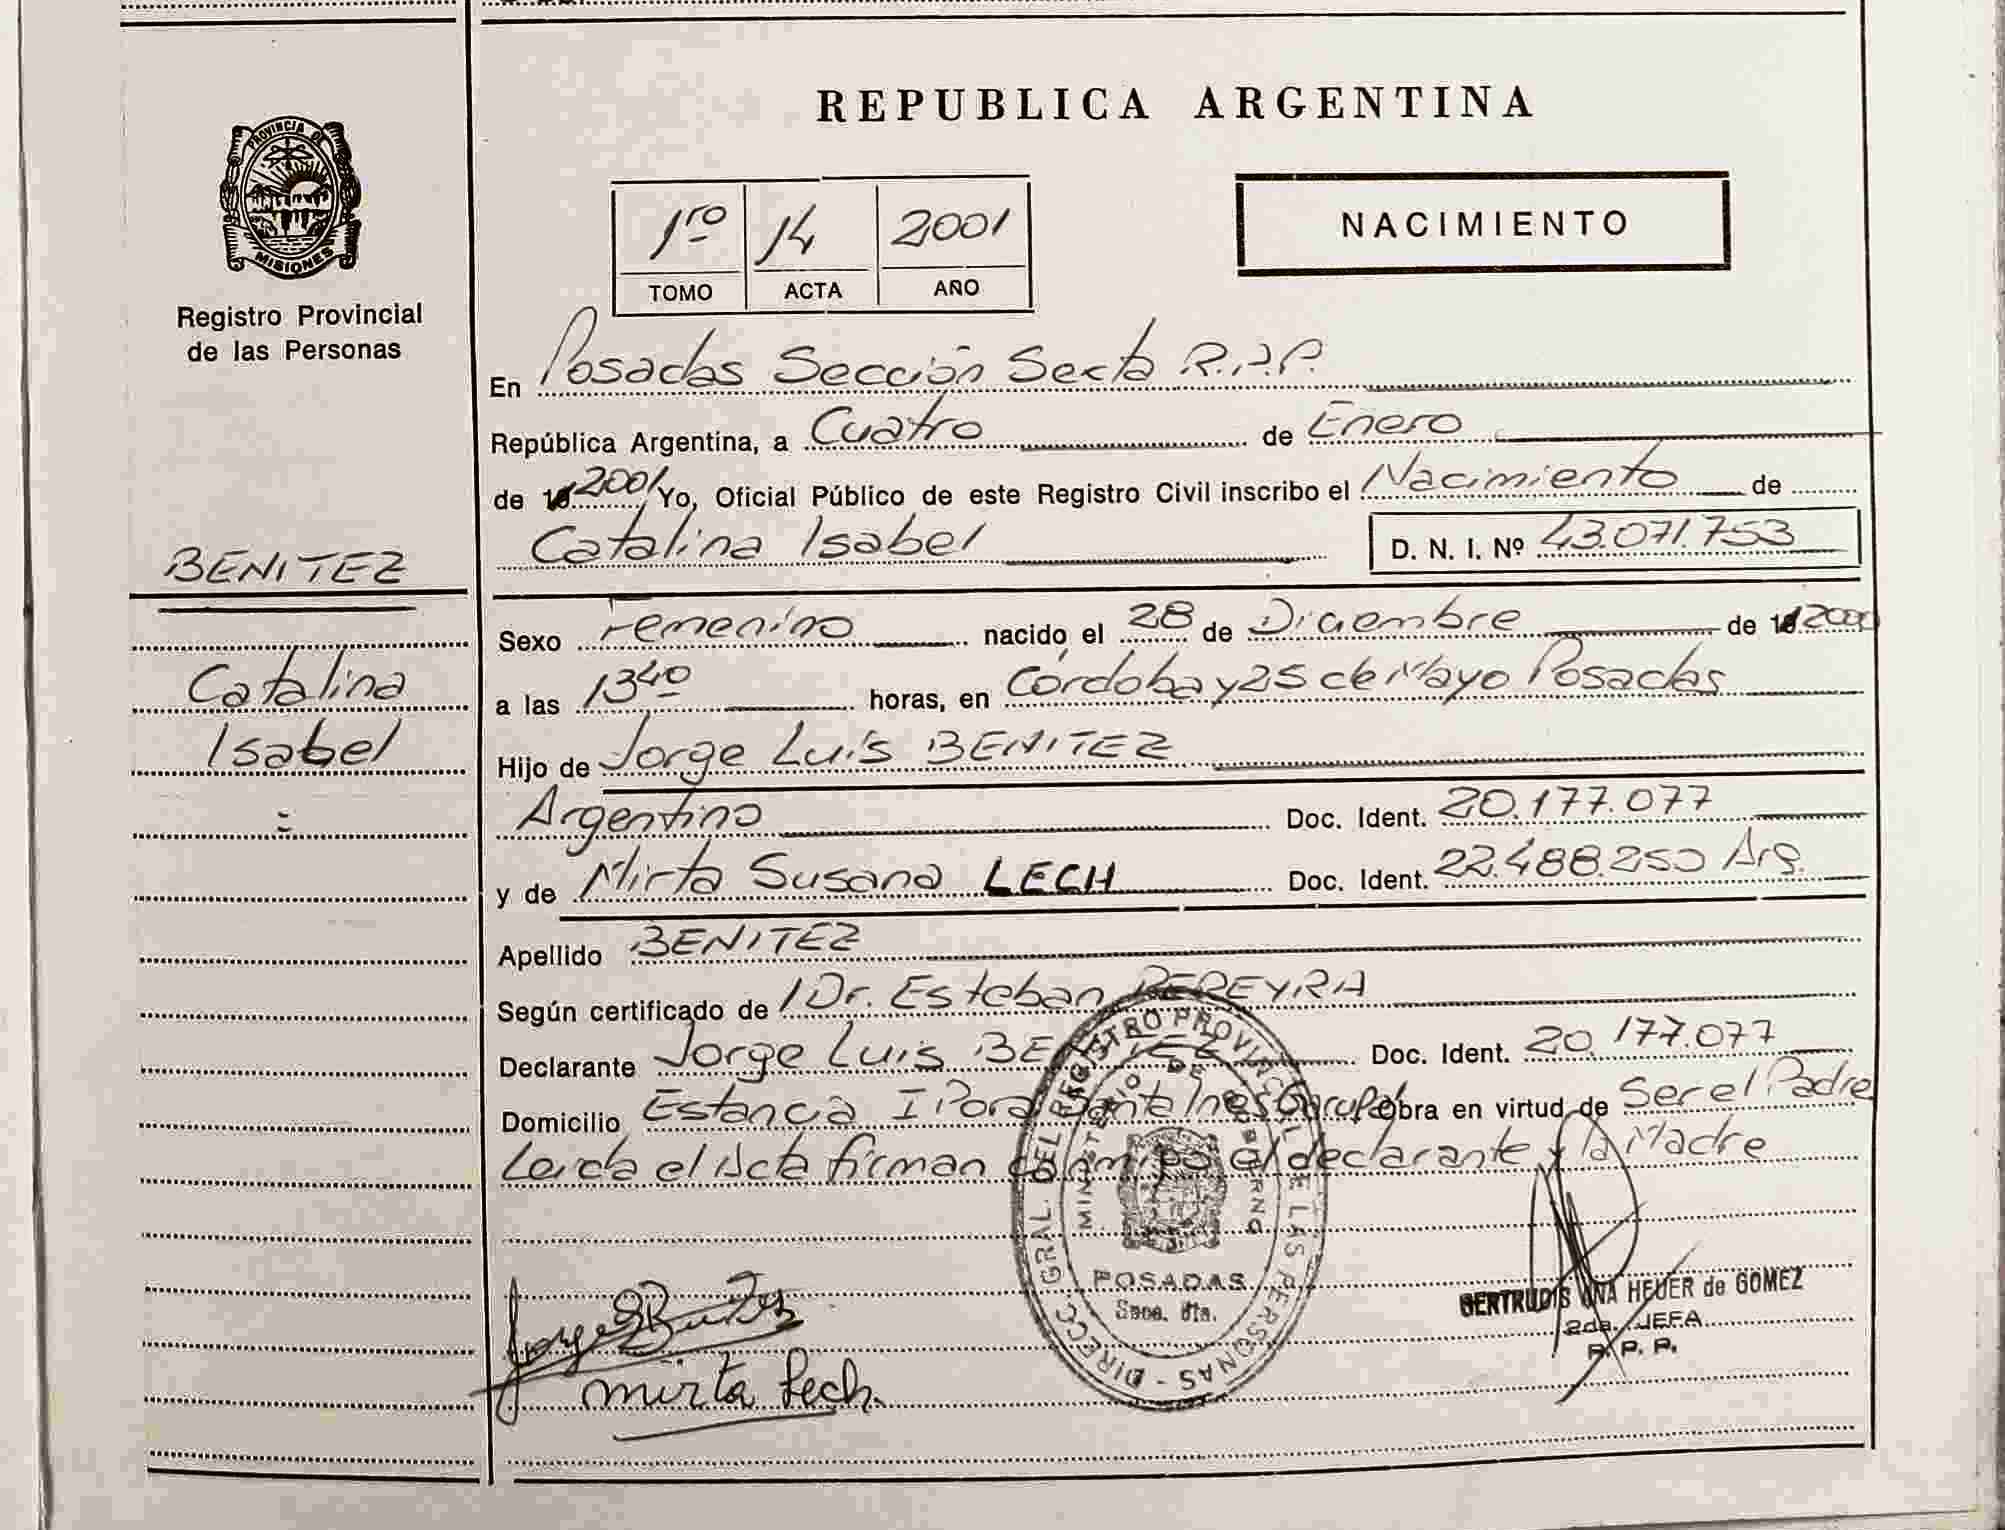 REPUBLICA ARGENTINA
PROVINCIA DE
MISIONES
Registro Provincial
de las Personas
1ro 14 2001
TOMO ACTA AÑO
NACIMIENTO
En Posadas Sección Sexta R.P.P.
República Argentina, a Cuatro de Enero
de 2001 Yo, Oficial Público de este Registro Civil inscribo el Nacimiento de
Catalina Isabel D. N. I. Nº 43.071.753
BENITEZ
Catalina
Isabel
Sexo Femenino nacido el 28 de Diciembre de 2000
a las 13 40 horas, en Córdoba y 25 de Mayo Posadas
Hijo de Jorge Luis BENITEZ
Argentino Doc. Ident. 20.177.077
y de Mirta Susana LECH Doc. Ident. 22.488.250 Arg.
Apellido BENITEZ
Según certificado de Dr. Esteban PEREYRA
Declarante Jorge Luis BENITEZ Doc. Ident. 20.177.077
Domicilio Estancia I Pora Santa Ines Garupá Obra en virtud de Ser el Padre
Leida el Acta firman conmigo el declarante y la Madre
DIRECC. GRAL. DEL REGISTRO PROVINCIAL DE LAS PERSONAS -
MINISTERIO DE GOBIERNO
POSADAS
Secc. 6ta.
GERTRUDIS HEUER de GOMEZ
2da. JEFA
R. P. P.
Mirta Lech